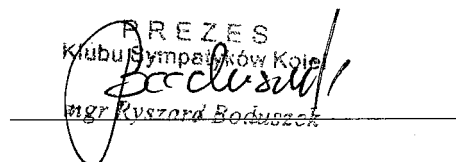 PREZES
Klubu Sympatyków Kolei
Boduszek
mgr Ryszard Boduszek